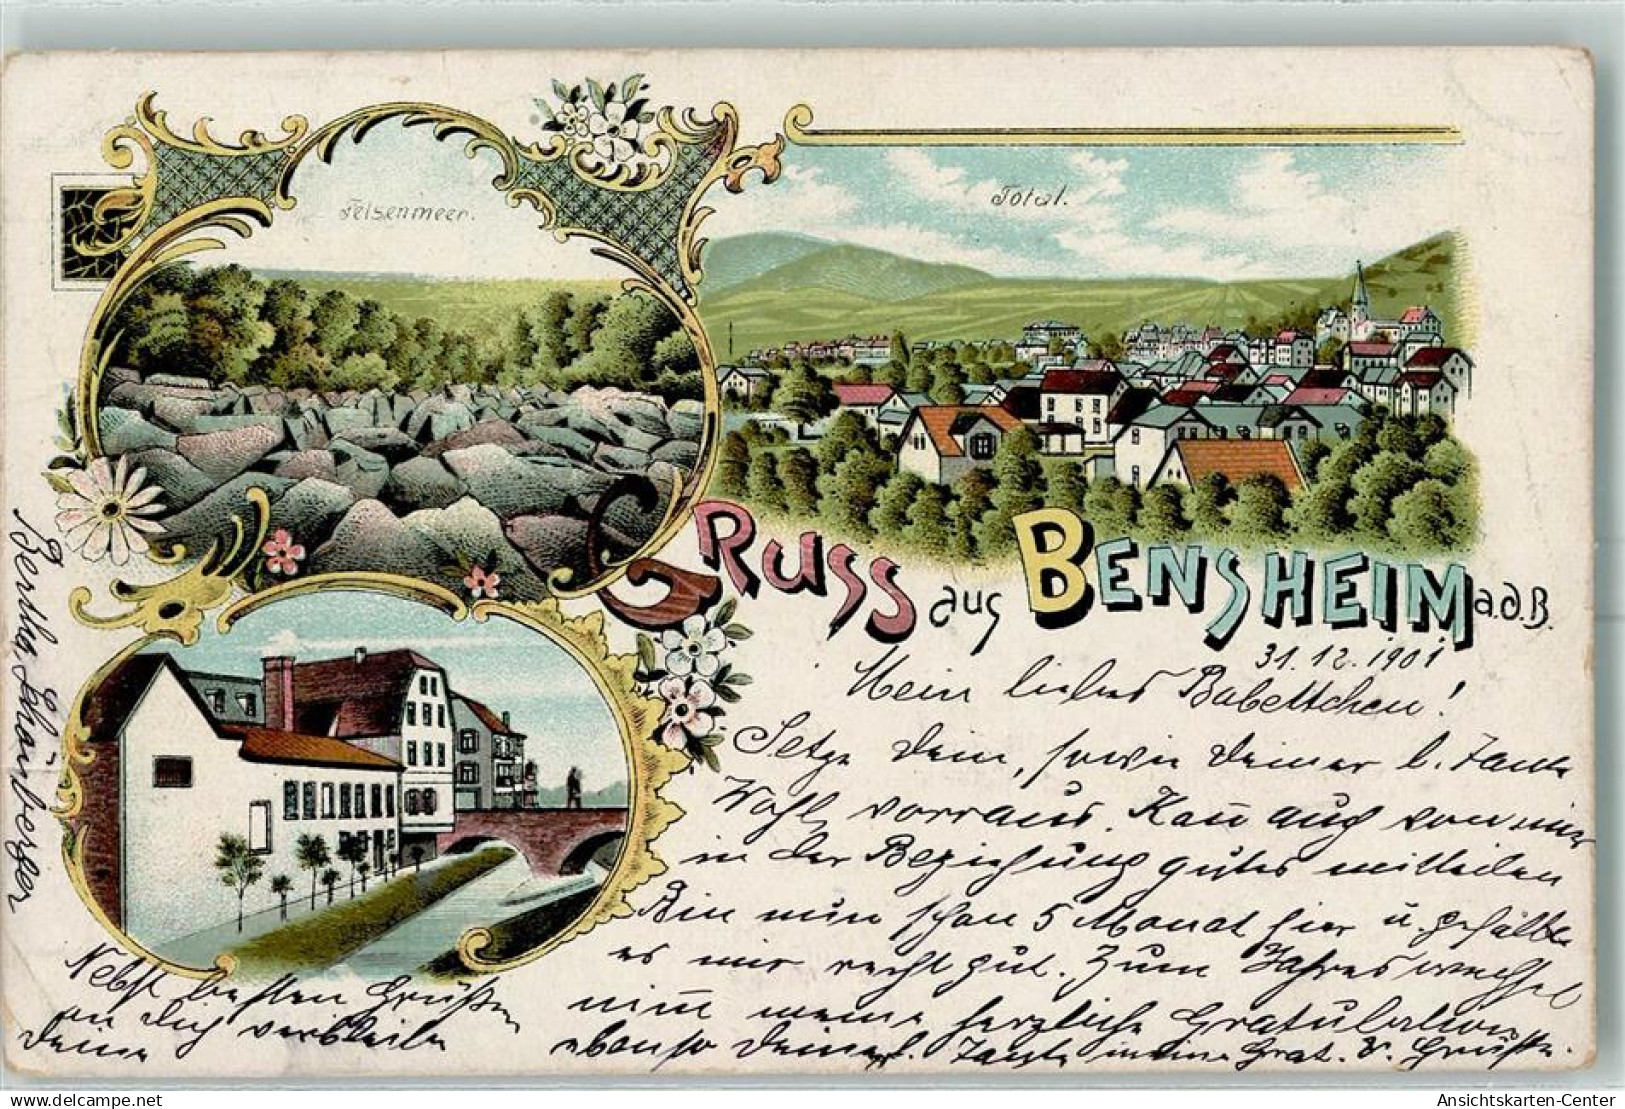 Felsenmeer.
Total.
GRUSS aus BENSHEIM a.d.B.
31.12.1901
Mein liebes Babettchen!
Setze Dein, sowie Deiner l. Tante
Wohl voraus. Kan̄ auch von mir
in der Beziehung gutes mitteilen
Bin nun schon 5 Monat hier u. gefällt
es mir recht gut. Zum Jahreswechsel
nim̄ meine herzliche Gratulation
ebenso Deine l. Tante meine Grat. & Grüße.
Nebst besten Grüßen
an Dich verbleibe
Deine
Bertha Schönberger
Ansichtskarten-Center